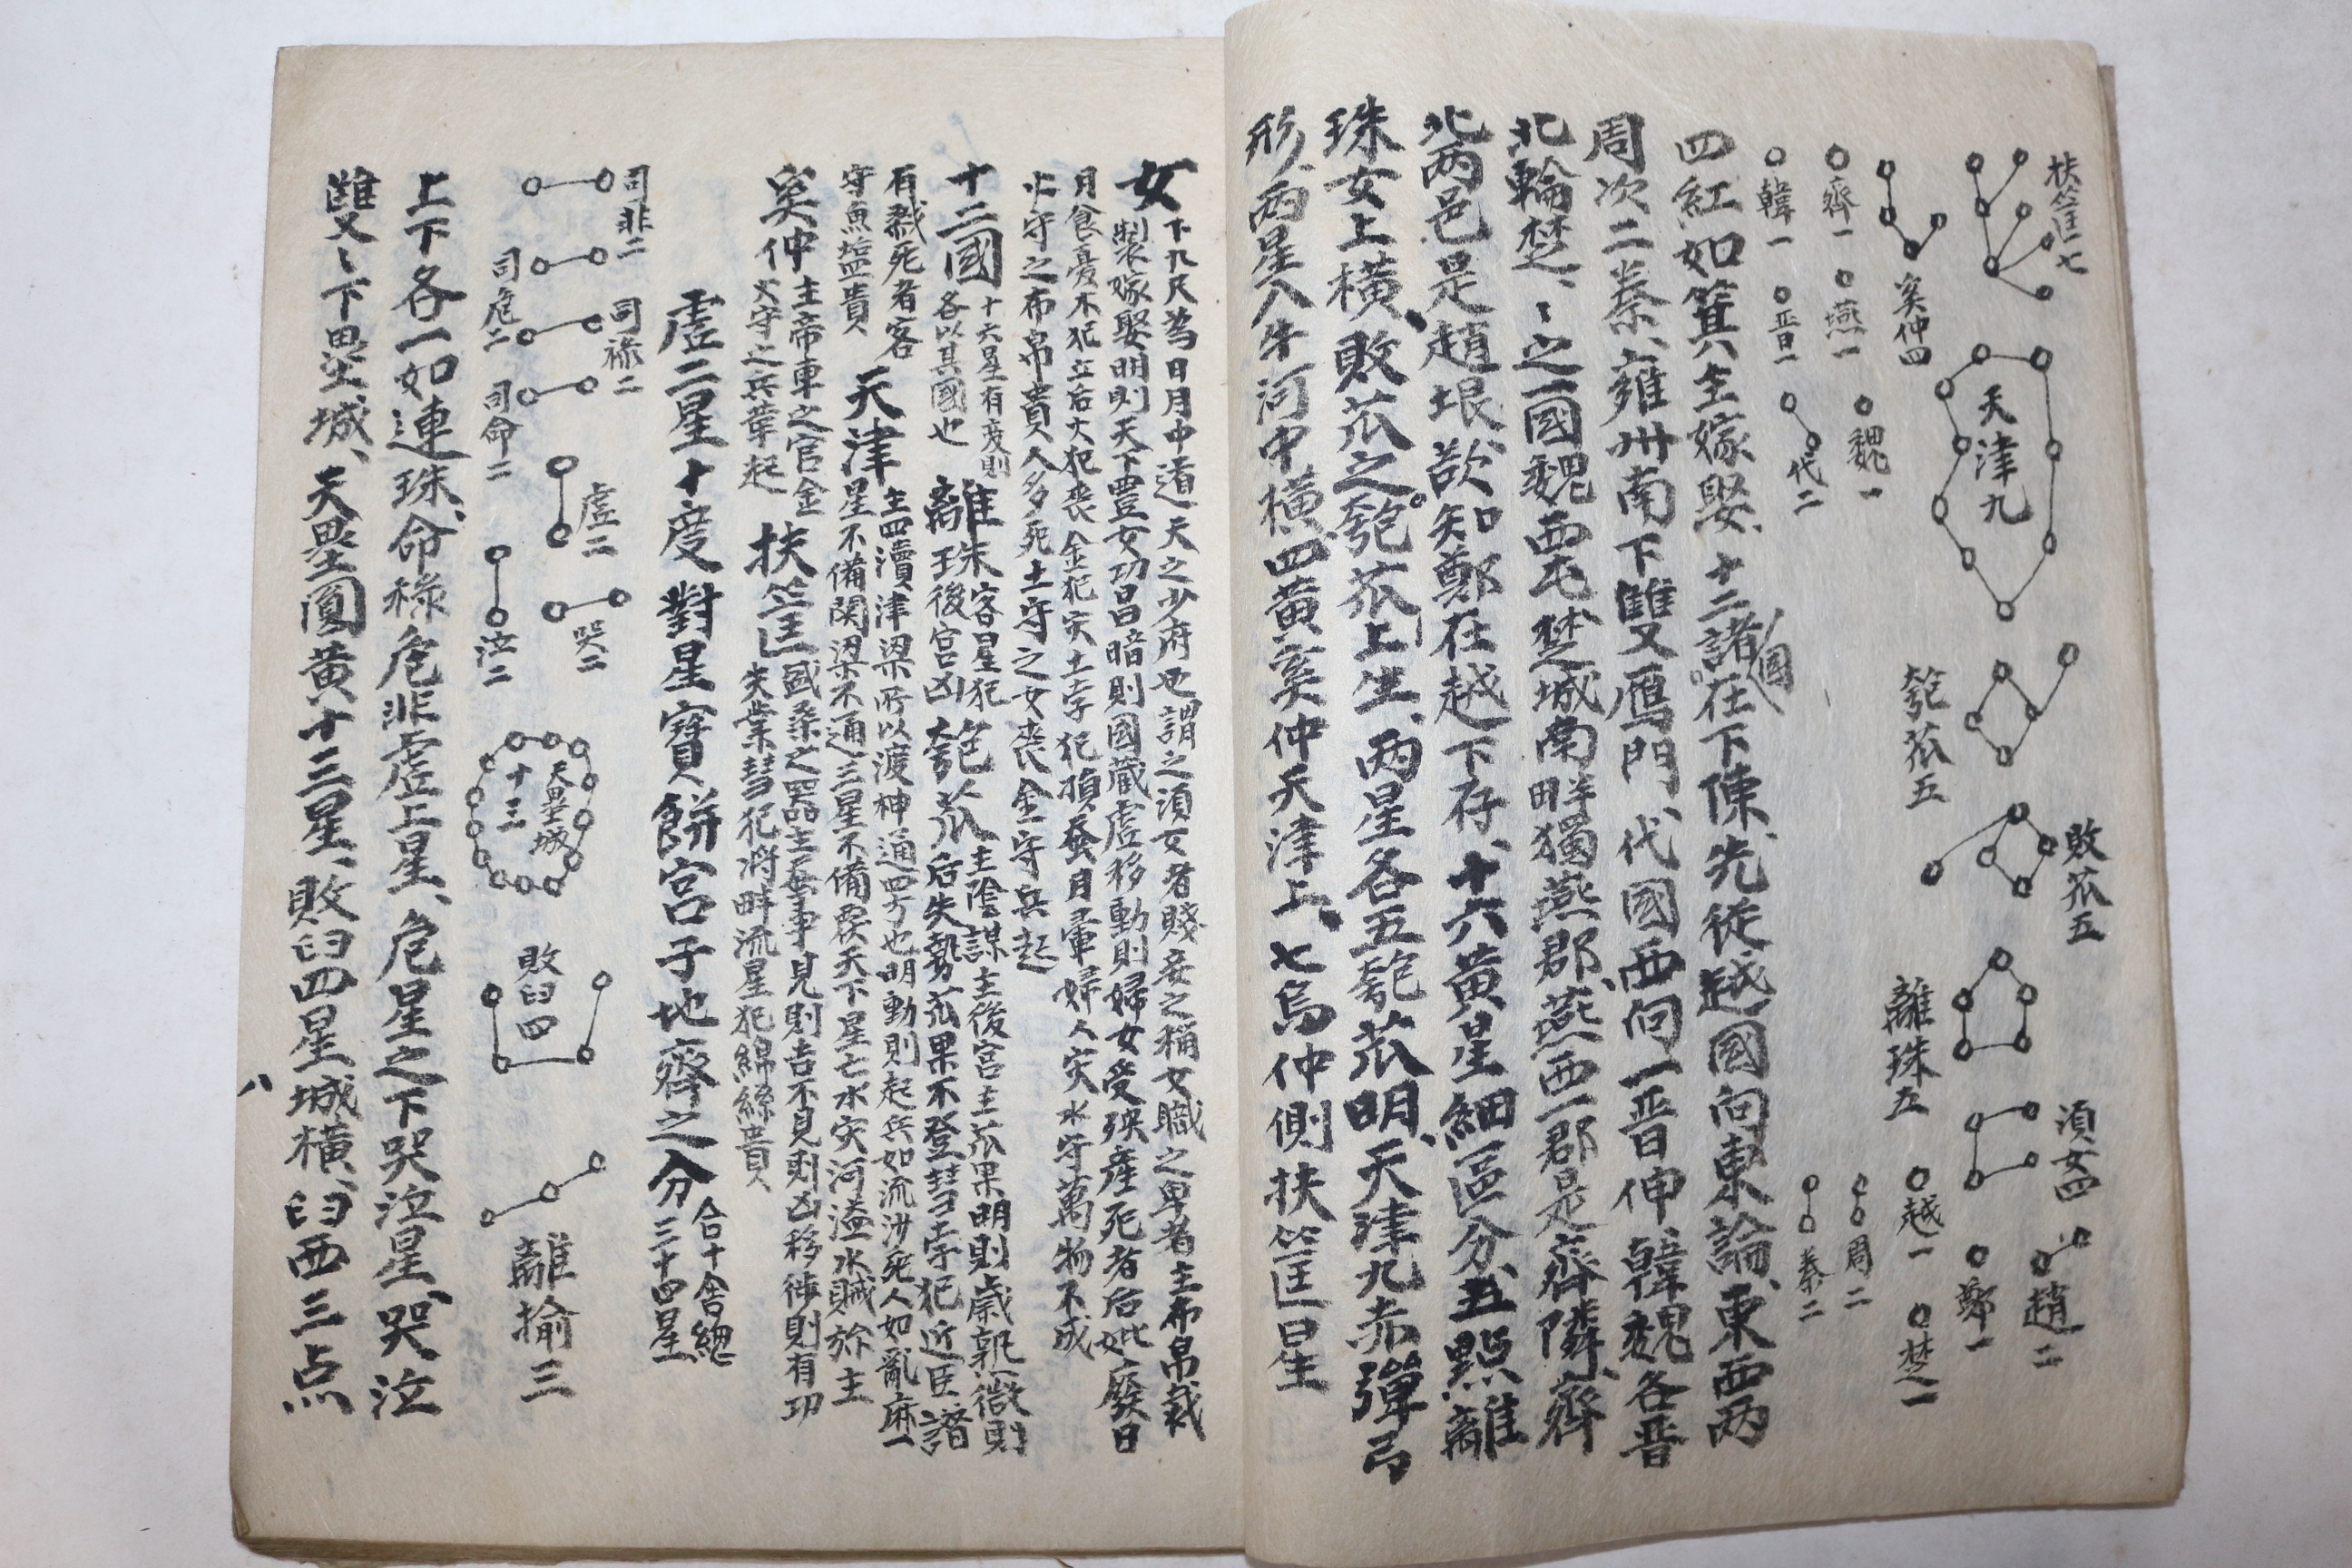 扶筐七
奚仲四
天津九
匏苽五
敗苽五
離珠五
須女四
齊一
燕一
魏一
韓一
晋一
代二
越一
趙二
鄭一
楚一
周二
秦二
四紅如箕主嫁娶、十二諸國在下陳、先從越國向東論、東西兩
周次二秦、雍州南下雙鴈門、代國西向一晋伸、韓魏各晋
北輪、楚、〻之一國魏西屯、楚城南畔獨燕郡、燕西一郡是齊隣、齊
北兩邑是趙垠、欲知鄭在越下存、十六黃星細區分、五點離
珠女上橫、敗苽之匏苽上生、兩星各五匏苽明、天津九赤彈弓
形、兩星入牛河中橫、四黃奚仲天津上、七烏仲側扶筐星
女
下九尺爲日月中道天之少府也謂之須女者賤妾之稱女職之卑者主布帛裁
製嫁娶明則天下豊女功昌暗則國藏虛移動則婦女受殃産死者后妣廢日
月食憂木犯立后火犯喪金犯灾土孛犯損蚕月暈婦人灾水守萬物不成
火守之布帛貴人多死土守之女喪金守兵起
十二國
十六星有变則
各以其國也
離珠
客星犯
後宮凶
匏苽
主陰謀主後宮主苽果明則歲熟微則
后失勢苽果不登彗孛犯近臣譖
有戮死者客
守魚塩貴
天津
主四瀆津梁所以渡神通四方也明動則起兵如流沙死人如亂麻一
星不備関梁不通三星不備覆天下星亡水灾河溢水賊称主
奚仲
主帝車之官金
火守之兵革起
扶筐
國桑之器主蚕事見則吉不見則凶移徙則有功
失業彗犯將畔流星犯綿絲貴
虛二星十度對星寶餠宮子地齊之分
合十舍緫
三十四星
司非二
司危二
司祿二
司命二
虛二
哭二
泣二
天壘城
十三
敗臼四
離揄三
上下各一如連珠、命祿危非虛上星、危星之下哭泣星、哭泣
雙〻下壘城、天壘圓黃十三星、敗臼四星城橫、臼西三点
八